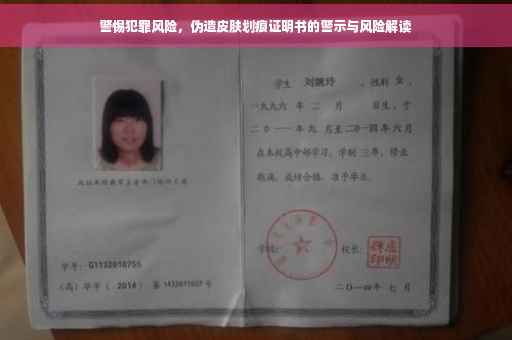 警惕犯罪风险，伪造皮肤划痕证明书的警示与风险解读
学生 刘婉玲 ，性别 女 ，
一九九六 年 二 月 日生，于
二〇一一年 九 月至二〇一四年 六 月
在本校高中部学习，学制 三年，修业
期满，成绩合格，准予毕业。
学校： 校长：
学号： G1132010755
（高）毕字（ 2014 ）第 1432011027 号
二〇一四年 七 月